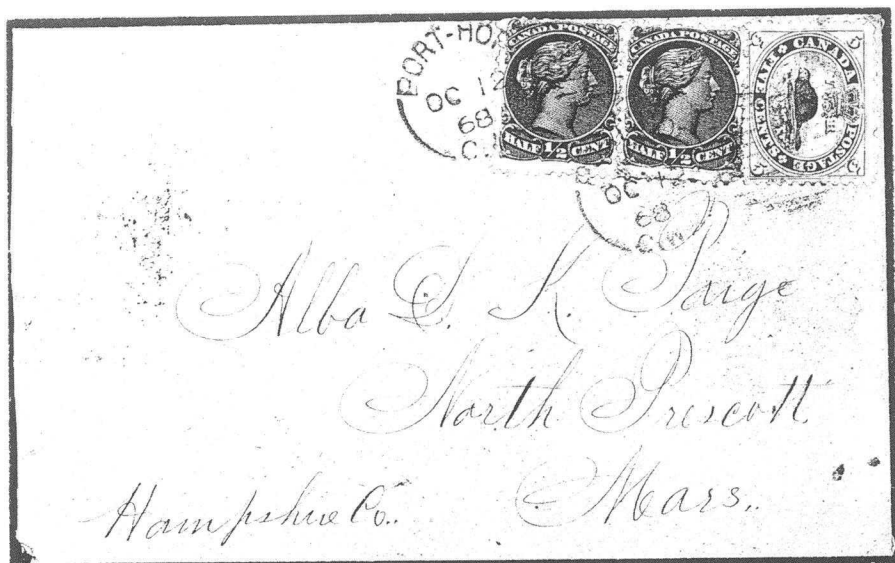 PORT-HOP
OC 12
68
C.W
CANADA POSTAGE
HALF 1/2 CENT
CANADA POSTAGE
HALF 1/2 CENT
5 5
CANADA POSTAGE FIVE CENTS
5 5
OC 12
68
C.W
Alba S. K. Paige
North Prescott
Hampshire Co.. Mass..